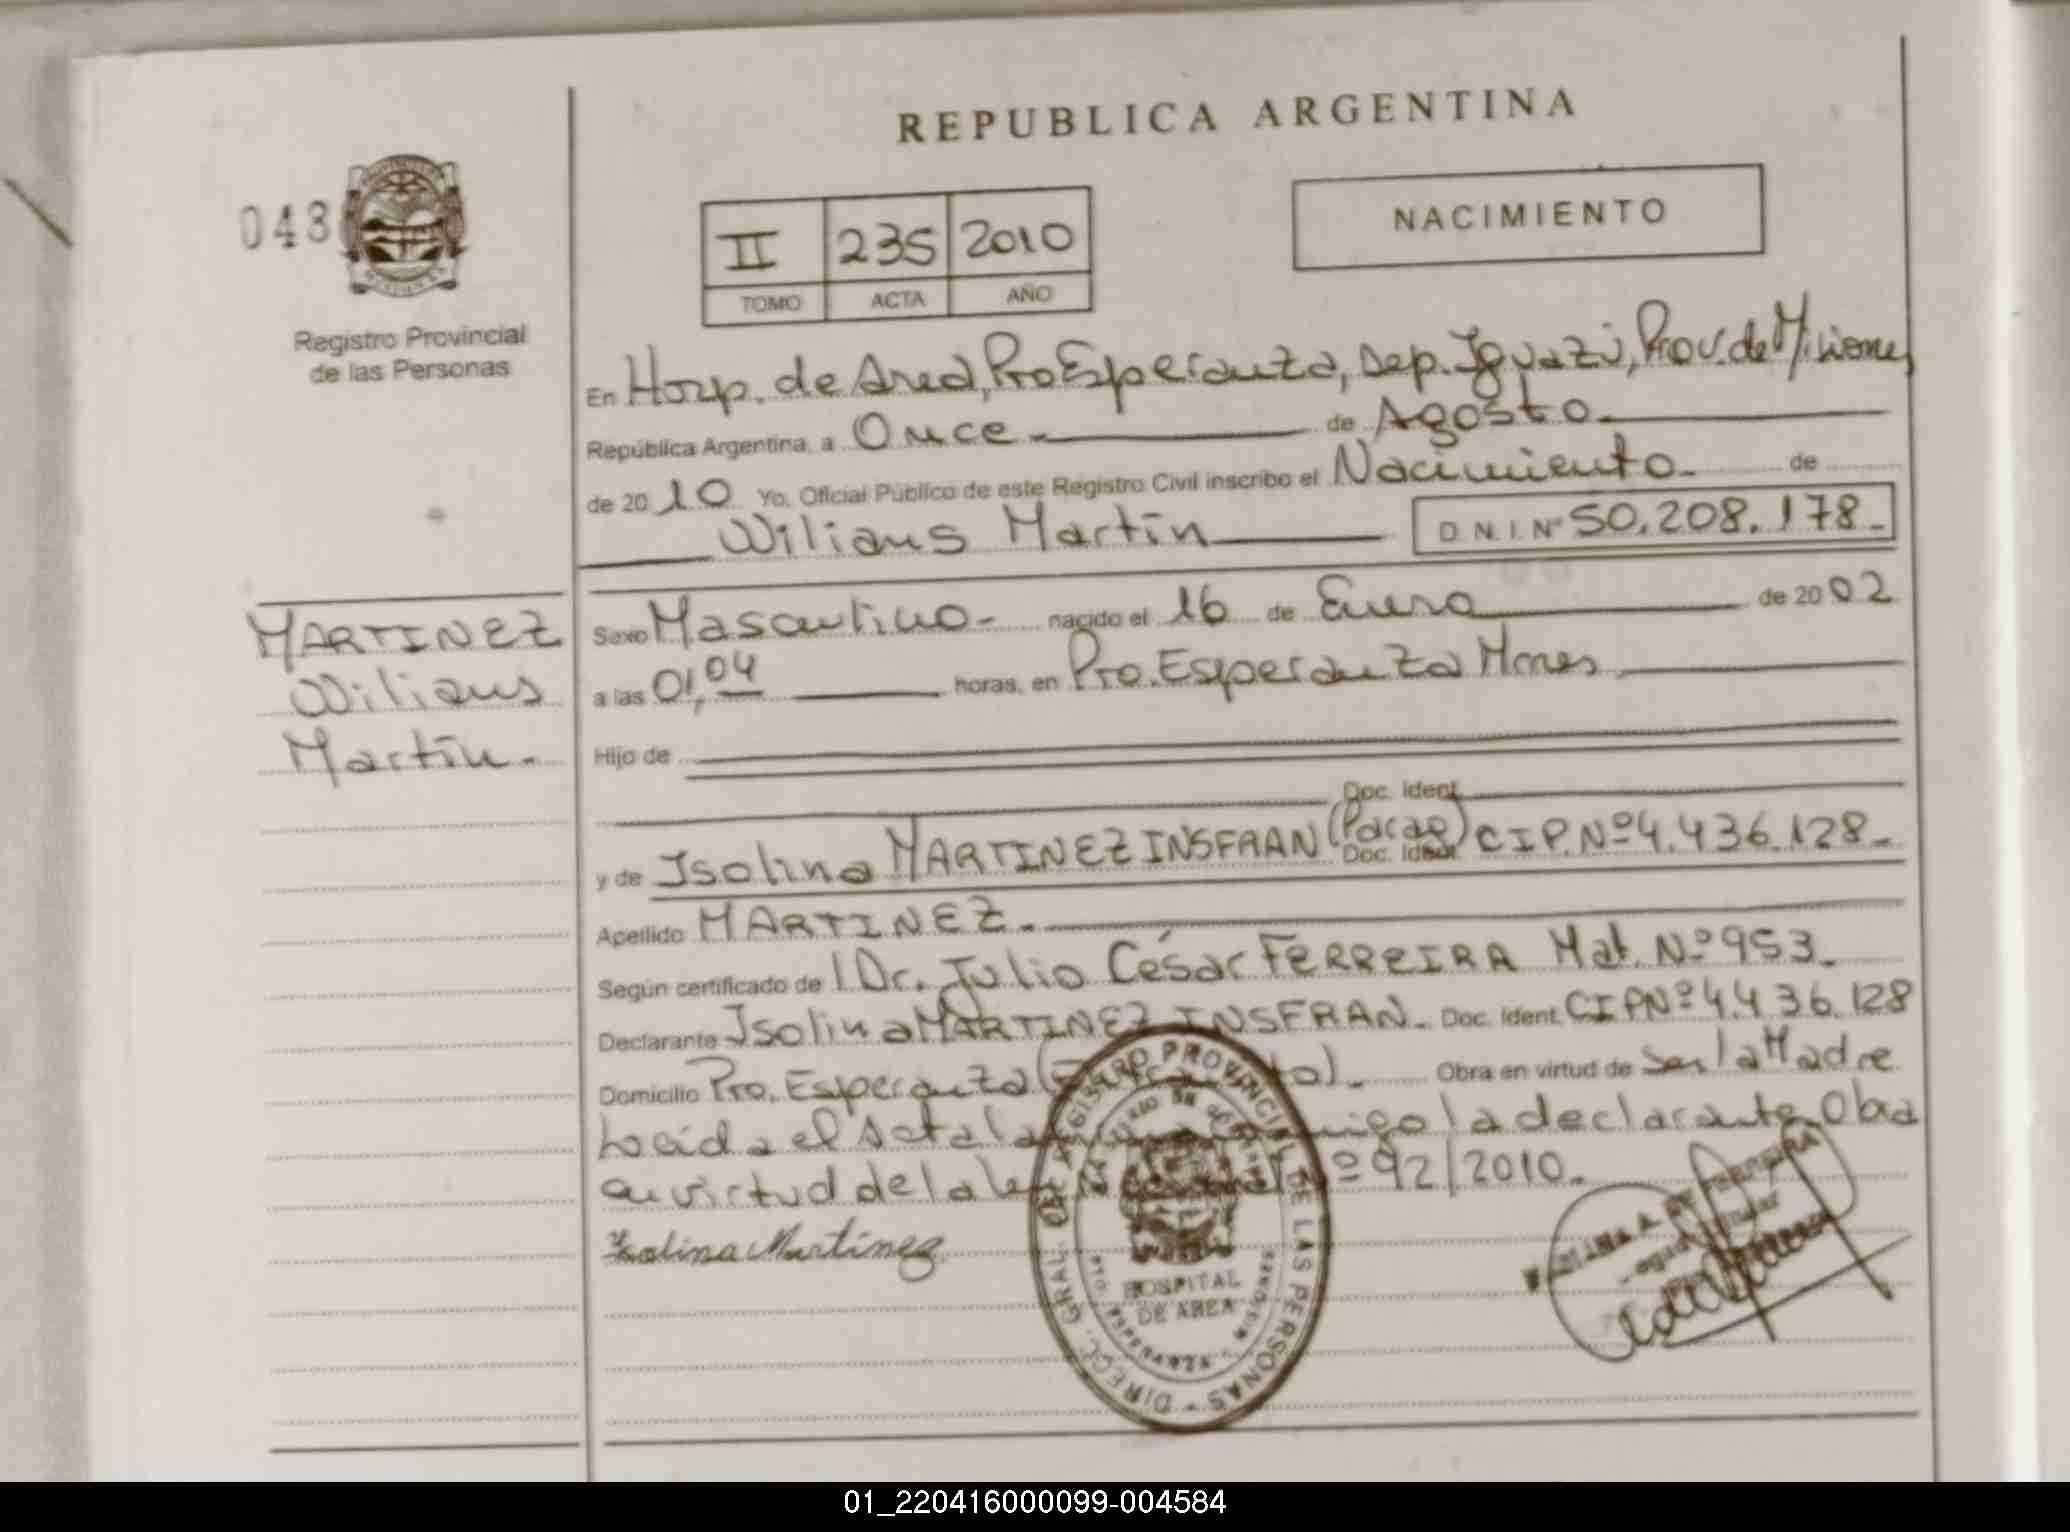 REPUBLICA ARGENTINA
043
II 235 2010
TOMO ACTA AÑO
NACIMIENTO
Registro Provincial
de las Personas
En Hosp. de Area, Pto Esperanza, Dep. Iguazú, Prov. de Misiones
República Argentina, a Once.- de Agosto.
de 2010 Yo, Oficial Público de este Registro Civil inscribo el Nacimiento - de
Wilians Martín D.N.I. Nº 50.208.178.-
MARTINEZ
Wilians
Martín.-
Sexo Masculino - nacido el 16 de Enero de 2002
a las 01,04 horas, en Pto. Esperanza Mnes
Hijo de
Doc. Ident.
y de Isolina MARTINEZ INSFRAN (Parag) Doc. Ident. CIP. Nº 4.436.128.-
Apellido MARTINEZ.-
Según certificado de l Dr. Julio César FERREIRA Mat. Nº 953.-
Declarante Isolina MARTINEZ INSFRAN. Doc. Ident. CIPNº 4.436.128
Domicilio Pto. Esperanza Obra en virtud de ser la Madre
Leida el Acta la declarante. Obra
en virtud de la º 92/2010.-
Isolina Martínez
DIRECC. GRAL. DEL REGISTRO PROVINCIAL DE LAS PERSONAS
HOSPITAL
DE AREA
PTO. ESPERANZA - MISIONES
01_220416000099-004584